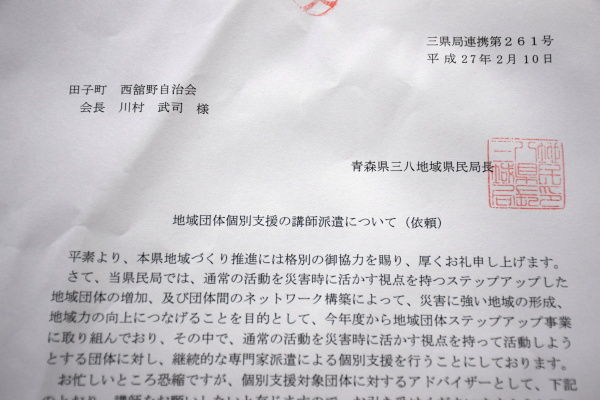 三県局連携第２６１号
平成２７年２月１０日
田子町　西舘野自治会
会長　川村　武司　様
青森県三八地域県民局長
地域団体個別支援の講師派遣について（依頼）
平素より、本県地域づくり推進には格別の御協力を賜り、厚くお礼申し上げます。
さて、当県民局では、通常の活動を災害時に活かす視点を持つステップアップした
地域団体の増加、及び団体間のネットワーク構築によって、災害に強い地域の形成、
地域力の向上につなげることを目的として、今年度から地域団体ステップアップ事業
に取り組んでおり、その中で、通常の活動を災害時に活かす視点を持って活動しよう
とする団体に対し、継続的な専門家派遣による個別支援を行うことにしております。
お忙しいところ恐縮ですが、個別支援対象団体に対するアドバイザーとして、下記
のとおり、講師をお願いしたいと存じますので、お引き受けくださいますよう